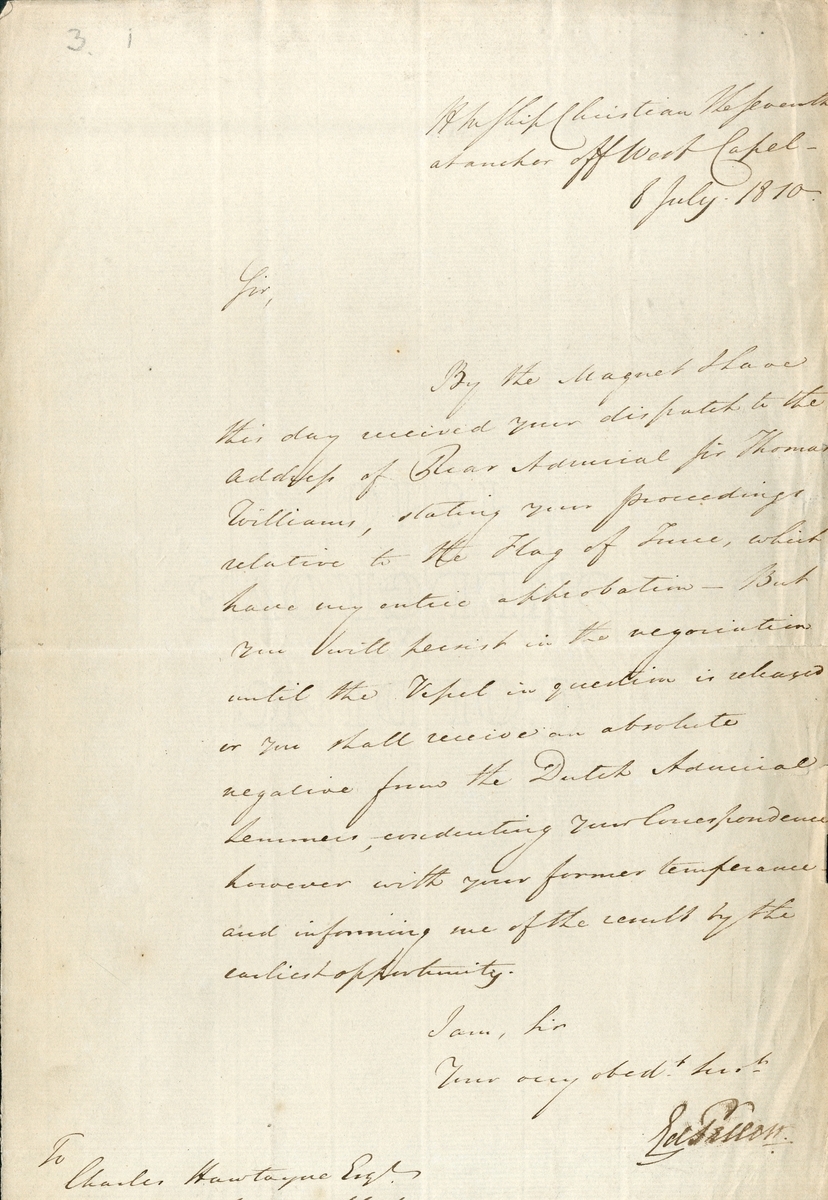 3. 1
H M Ship Christian the Seventh
at anchor off West Capel -
8 July. 1810.
Sir,
By the Magnet I have
this day received your dispatch to the
Address of Rear Admiral Sir Thomas
Williams, stating your proceedings
relative to the Flag of Truce, which
have my entire approbation — But
you will persist in the negociation
until the Vessel in question is released
or you shall receive an absolute
negative from the Dutch Admiral
Lemmers, conducting your Correspondence
however with your former temperance
and informing me of the result by the
earliest opportunity.
I am, Sir
Your very obed.t Serv.t
Ed Pellew.
To
Charles Hawtayne Esq.r